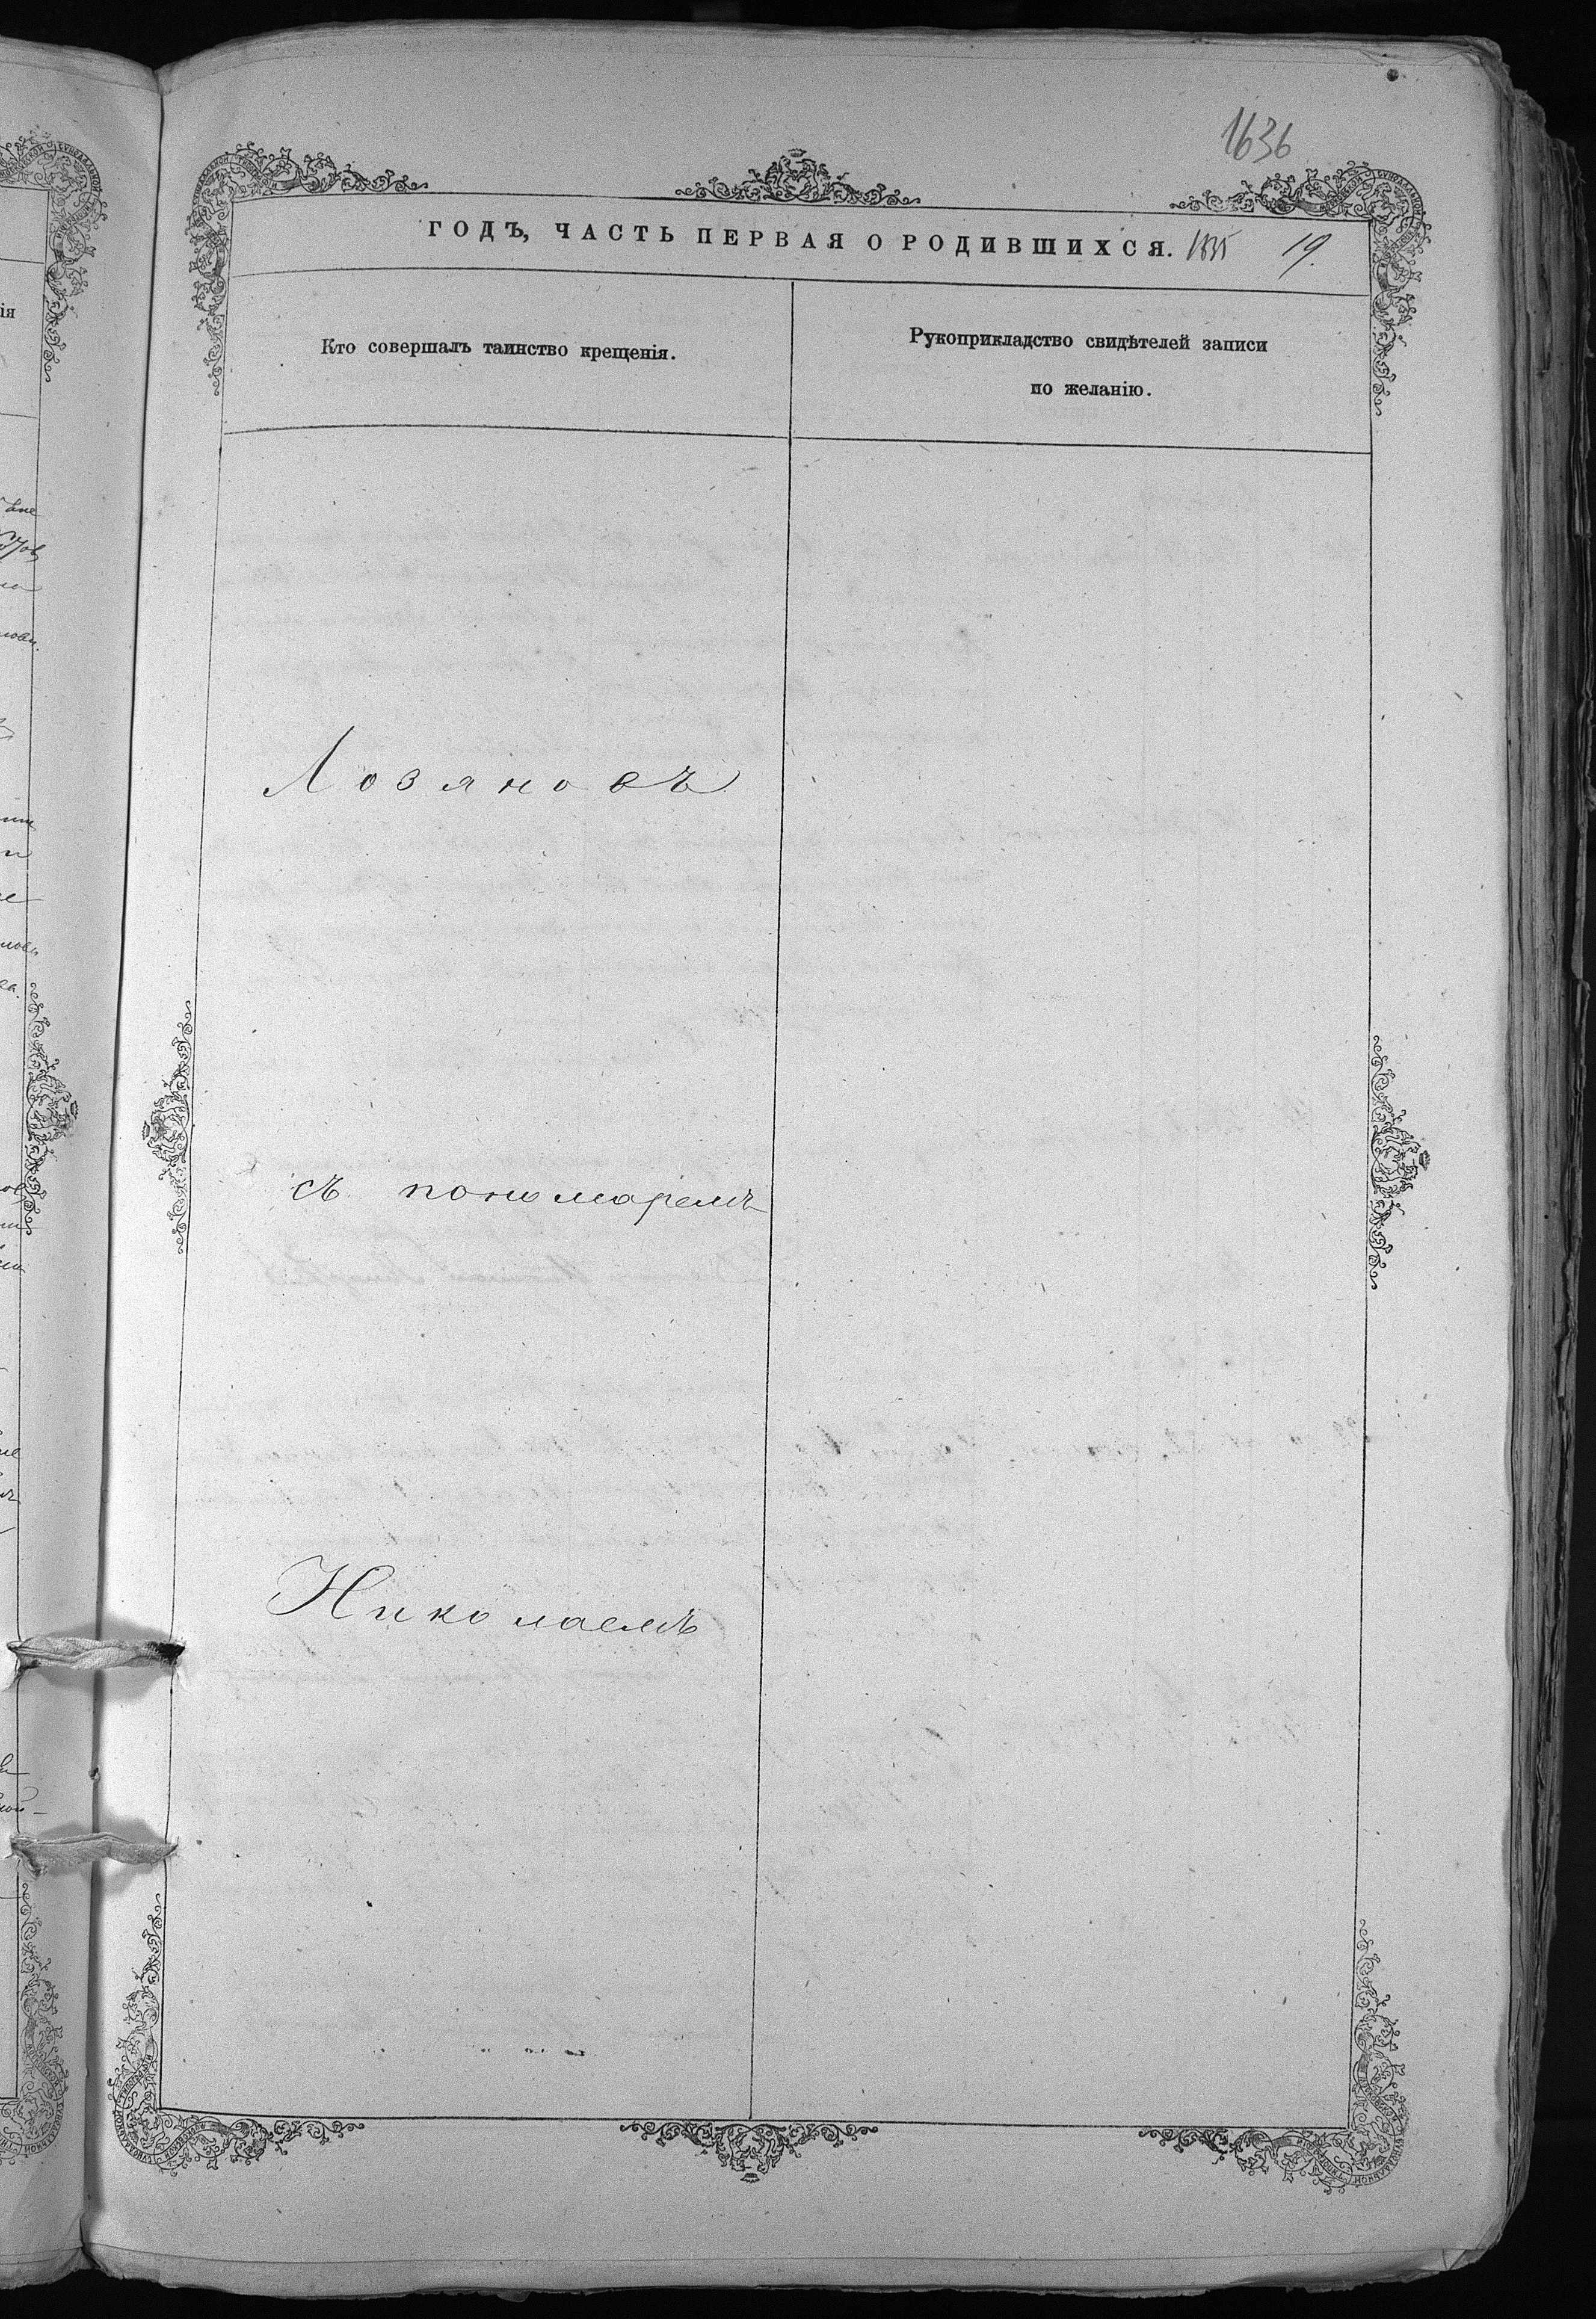 1636
ГОДЪ, ЧАСТЬ ПЕРВАЯ О РОДИВШИХСЯ. 1835 19.
Кто совершалъ таинство крещенія.
Рукоприкладство свидѣтелей записи
по желанію.
Лозяновъ
съ пономаремъ
Николаемъ